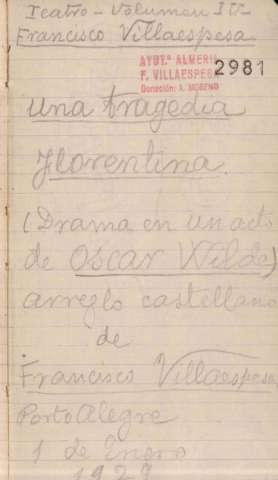 Teatro - Volumen IV-
Francisco Villaespesa
AYTº ALMERIA
F. VILLAESPESA
Donación: A. MORENO
2981
Una tragedia
florentina.
(Drama en un acto
de Oscar Wilde)
arreglo castellano
de
Francisco Villaespesa
Porto Alegre
1 de Enero
1929